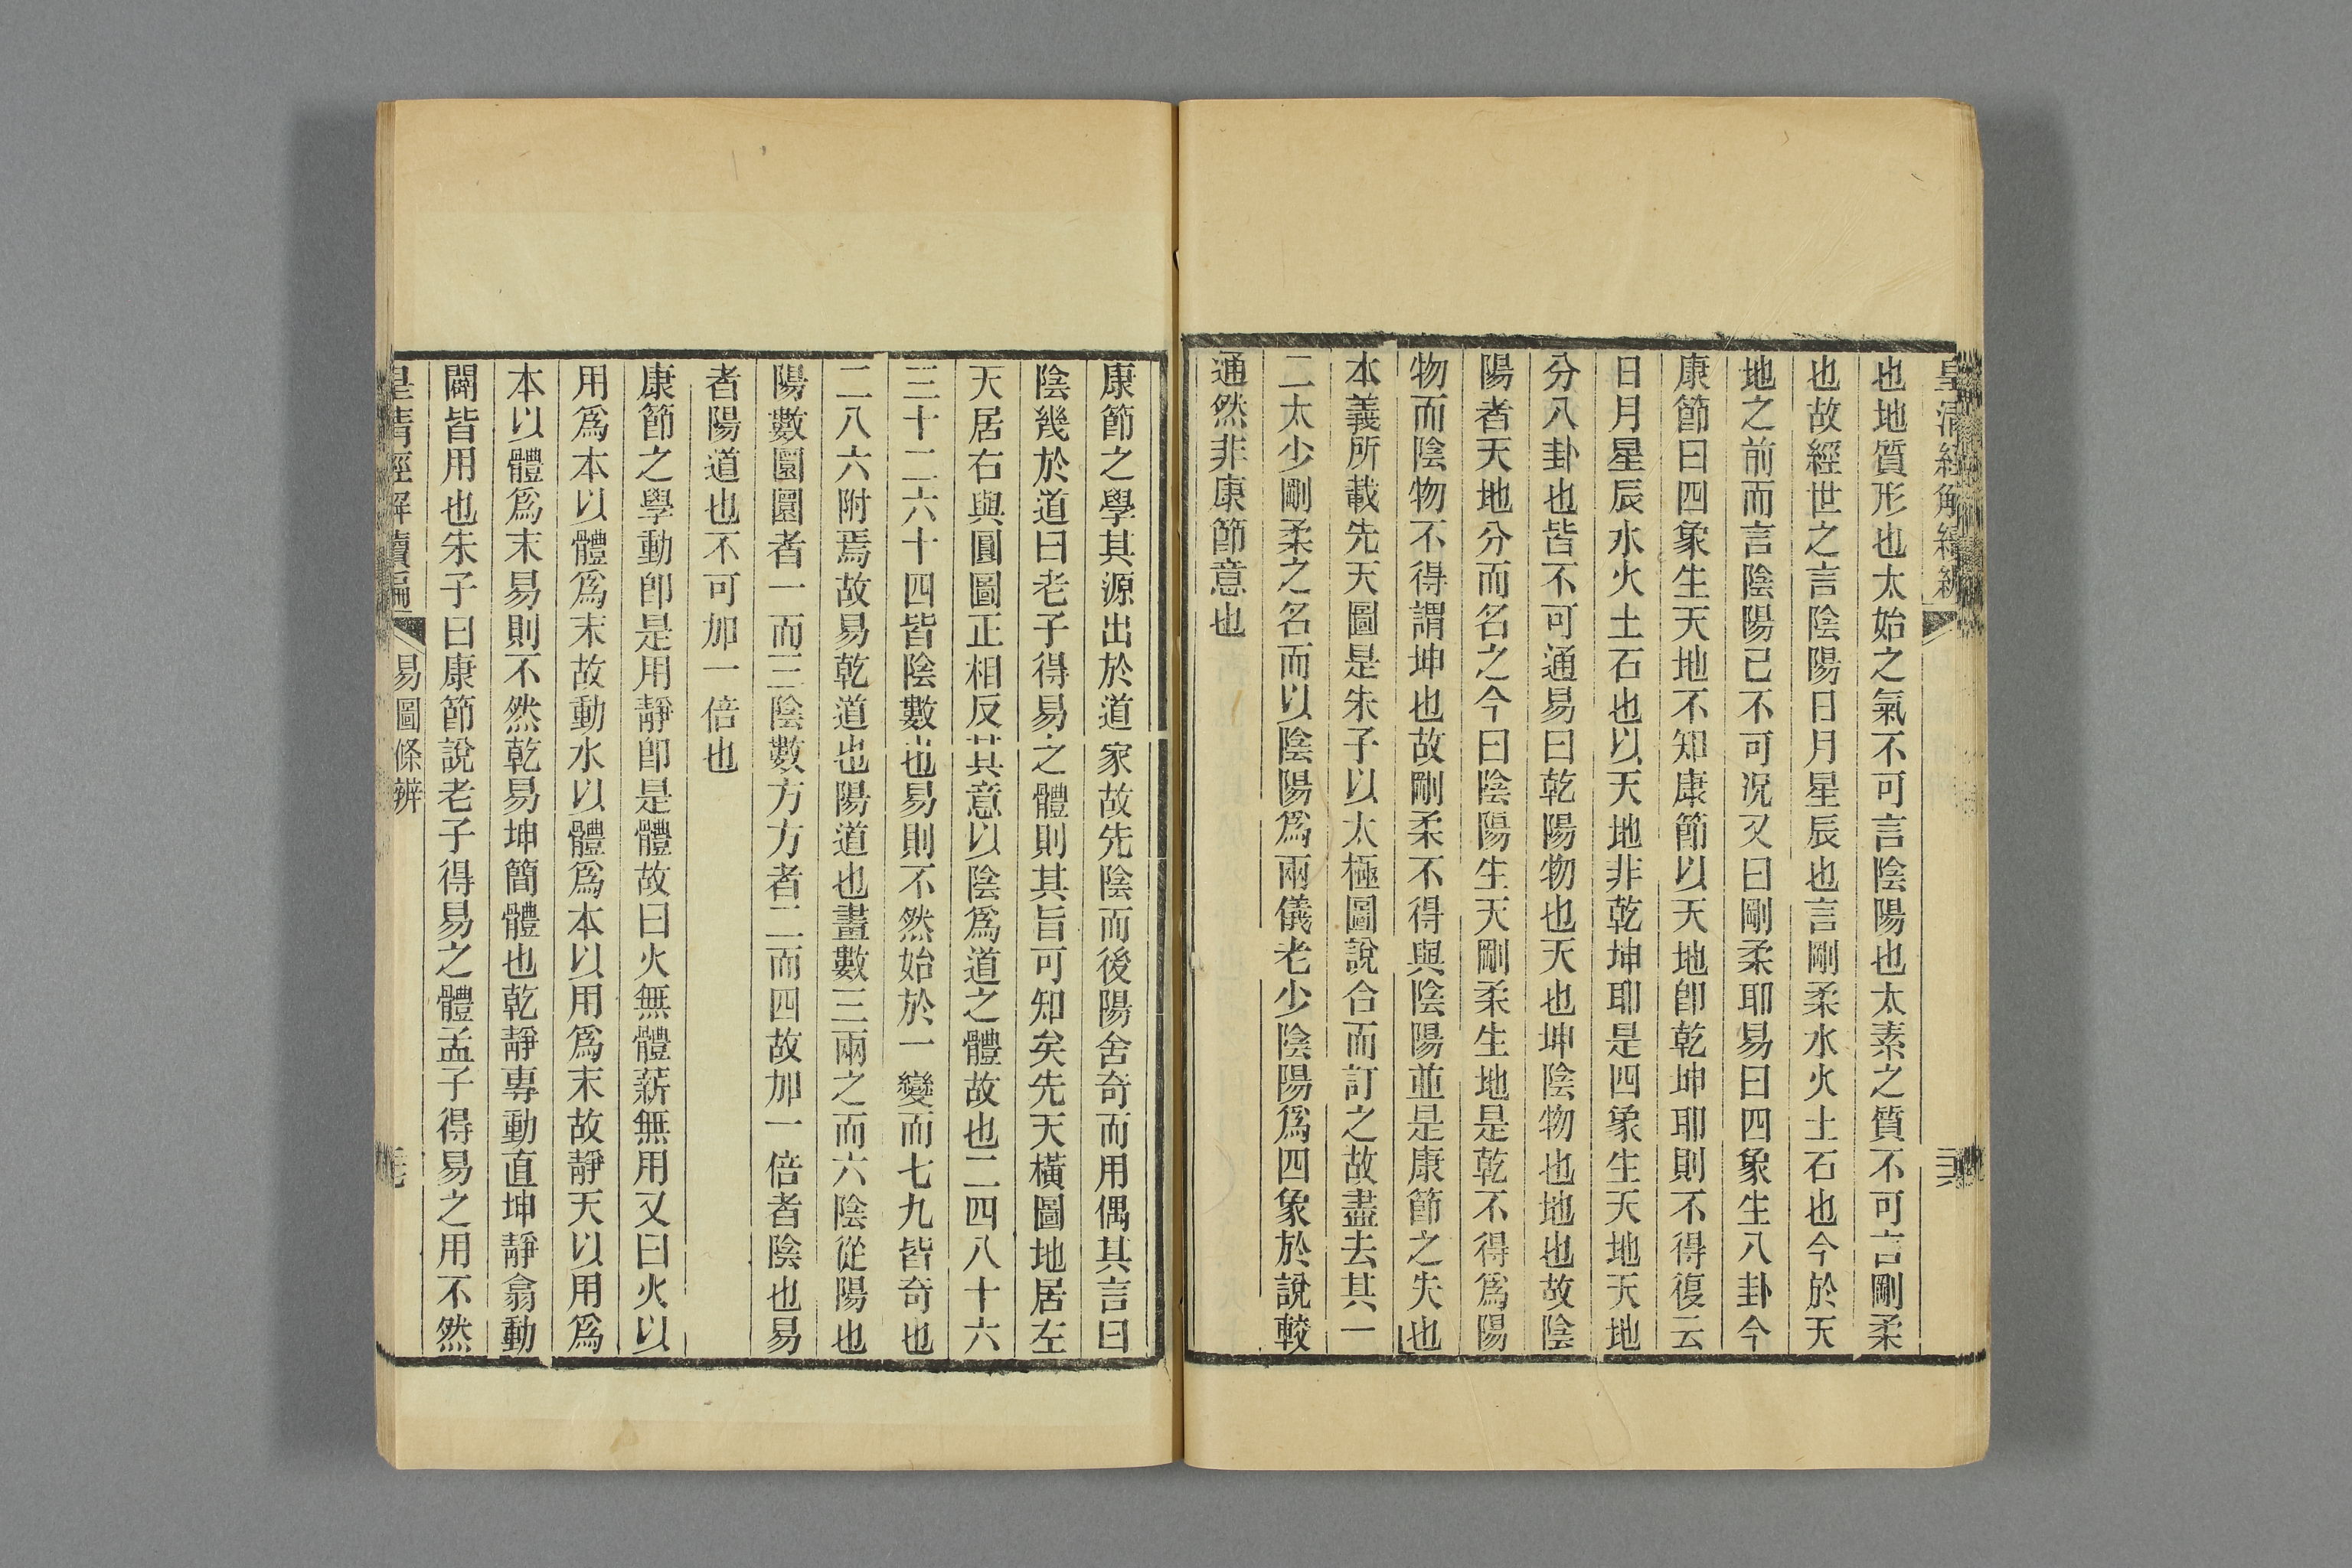 皇清經解續編
也地質形也太始之氣不可言陰陽也太素之質不可言剛柔
也故經世之言陰陽日月星辰也言剛柔水火土石也今於天
地之前而言陰陽已不可况又曰剛柔耶易曰四象生八卦今
康節曰四象生天地不知康節以天地卽乾坤耶則不得復云
日月星辰水火土石也以天地非乾坤耶是四象生天地天地
分八卦也皆不可通易曰乾陽物也天也坤陰物也地也故陰
陽者天地分而名之今曰陰陽生天剛柔生地是乾不得爲陽
物而陰物不得謂坤也故剛柔不得與陰陽並是康節之失也
本義所載先天圖是朱子以太極圖說合而訂之故盡去其一
二太少剛柔之名而以陰陽爲兩儀老少陰陽爲四象於說較
通然非康節意也
康節之學其源出於道家故先陰而後陽舍奇而用偶其言曰
陰幾於道曰老子得易之體則其旨可知矣先天橫圖地居左
天居右與圓圖正相反其意以陰爲道之體故也二四八十六
三十二六十四皆陰數也易則不然始於一變而七九皆奇也
二八六附焉故易乾道也陽道也畫數三兩之而六陰從陽也
陽數圜圜者一而三陰數方方者二而四故加一倍者陰也易
者陽道也不可加一倍也
康節之學動卽是用靜卽是體故曰火無體薪無用又曰火以
用爲本以體爲末故動水以體爲本以用爲末故靜天以用爲
本以體爲末易則不然乾易坤簡體也乾靜專動直坤靜翕動
闢皆用也朱子曰康節說老子得易之體孟子得易之用不然
皇清經解續編
易圖條辨